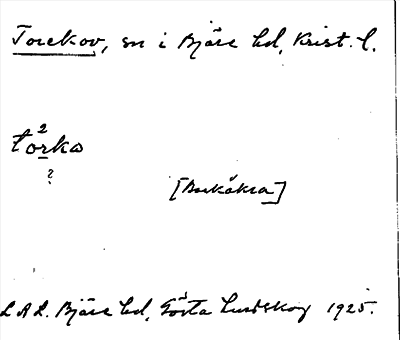 Torekov, sn i Bjäre hd, Krist. l.
to²rka
?
[Barkåkra]
LAL. Bjäre hd, Gösta Lundskog 1925.